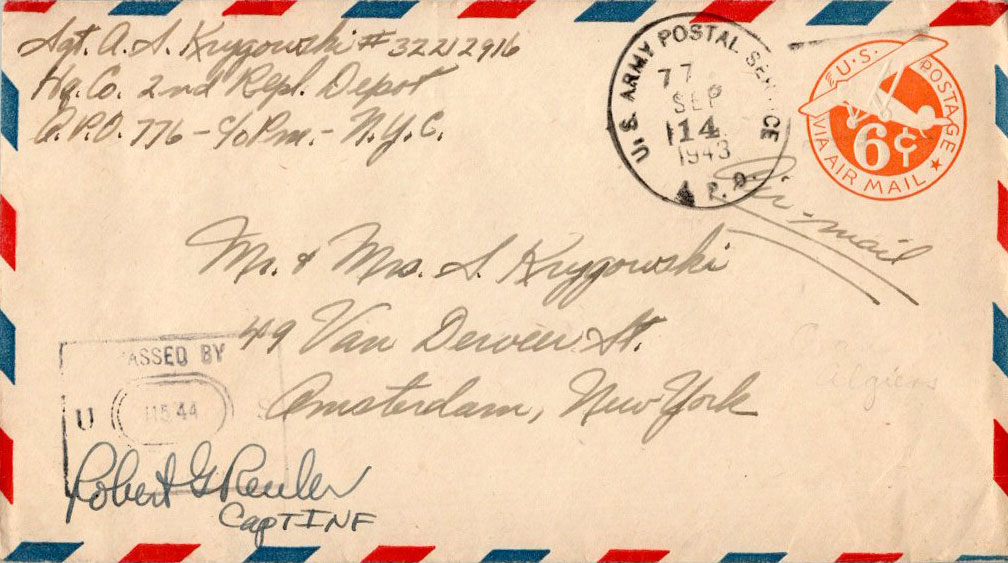 Sgt. A. S. Krygowski # 32212916
Hq. Co. 2nd Repl. Depot
A.P.O. 776 - c/o Pm. - N.Y.C.
U.S. ARMY POSTAL SERVICE
77
SEP
14
1943
A.P.O.
U.S. POSTAGE
6¢
VIA AIR MAIL
Air-mail
Mr. & Mrs. S. Krygowski
49 Van Derveer St.
Amsterdam, New York
Algiers
ASSED BY
U S
Robert G Reuler
Capt INF